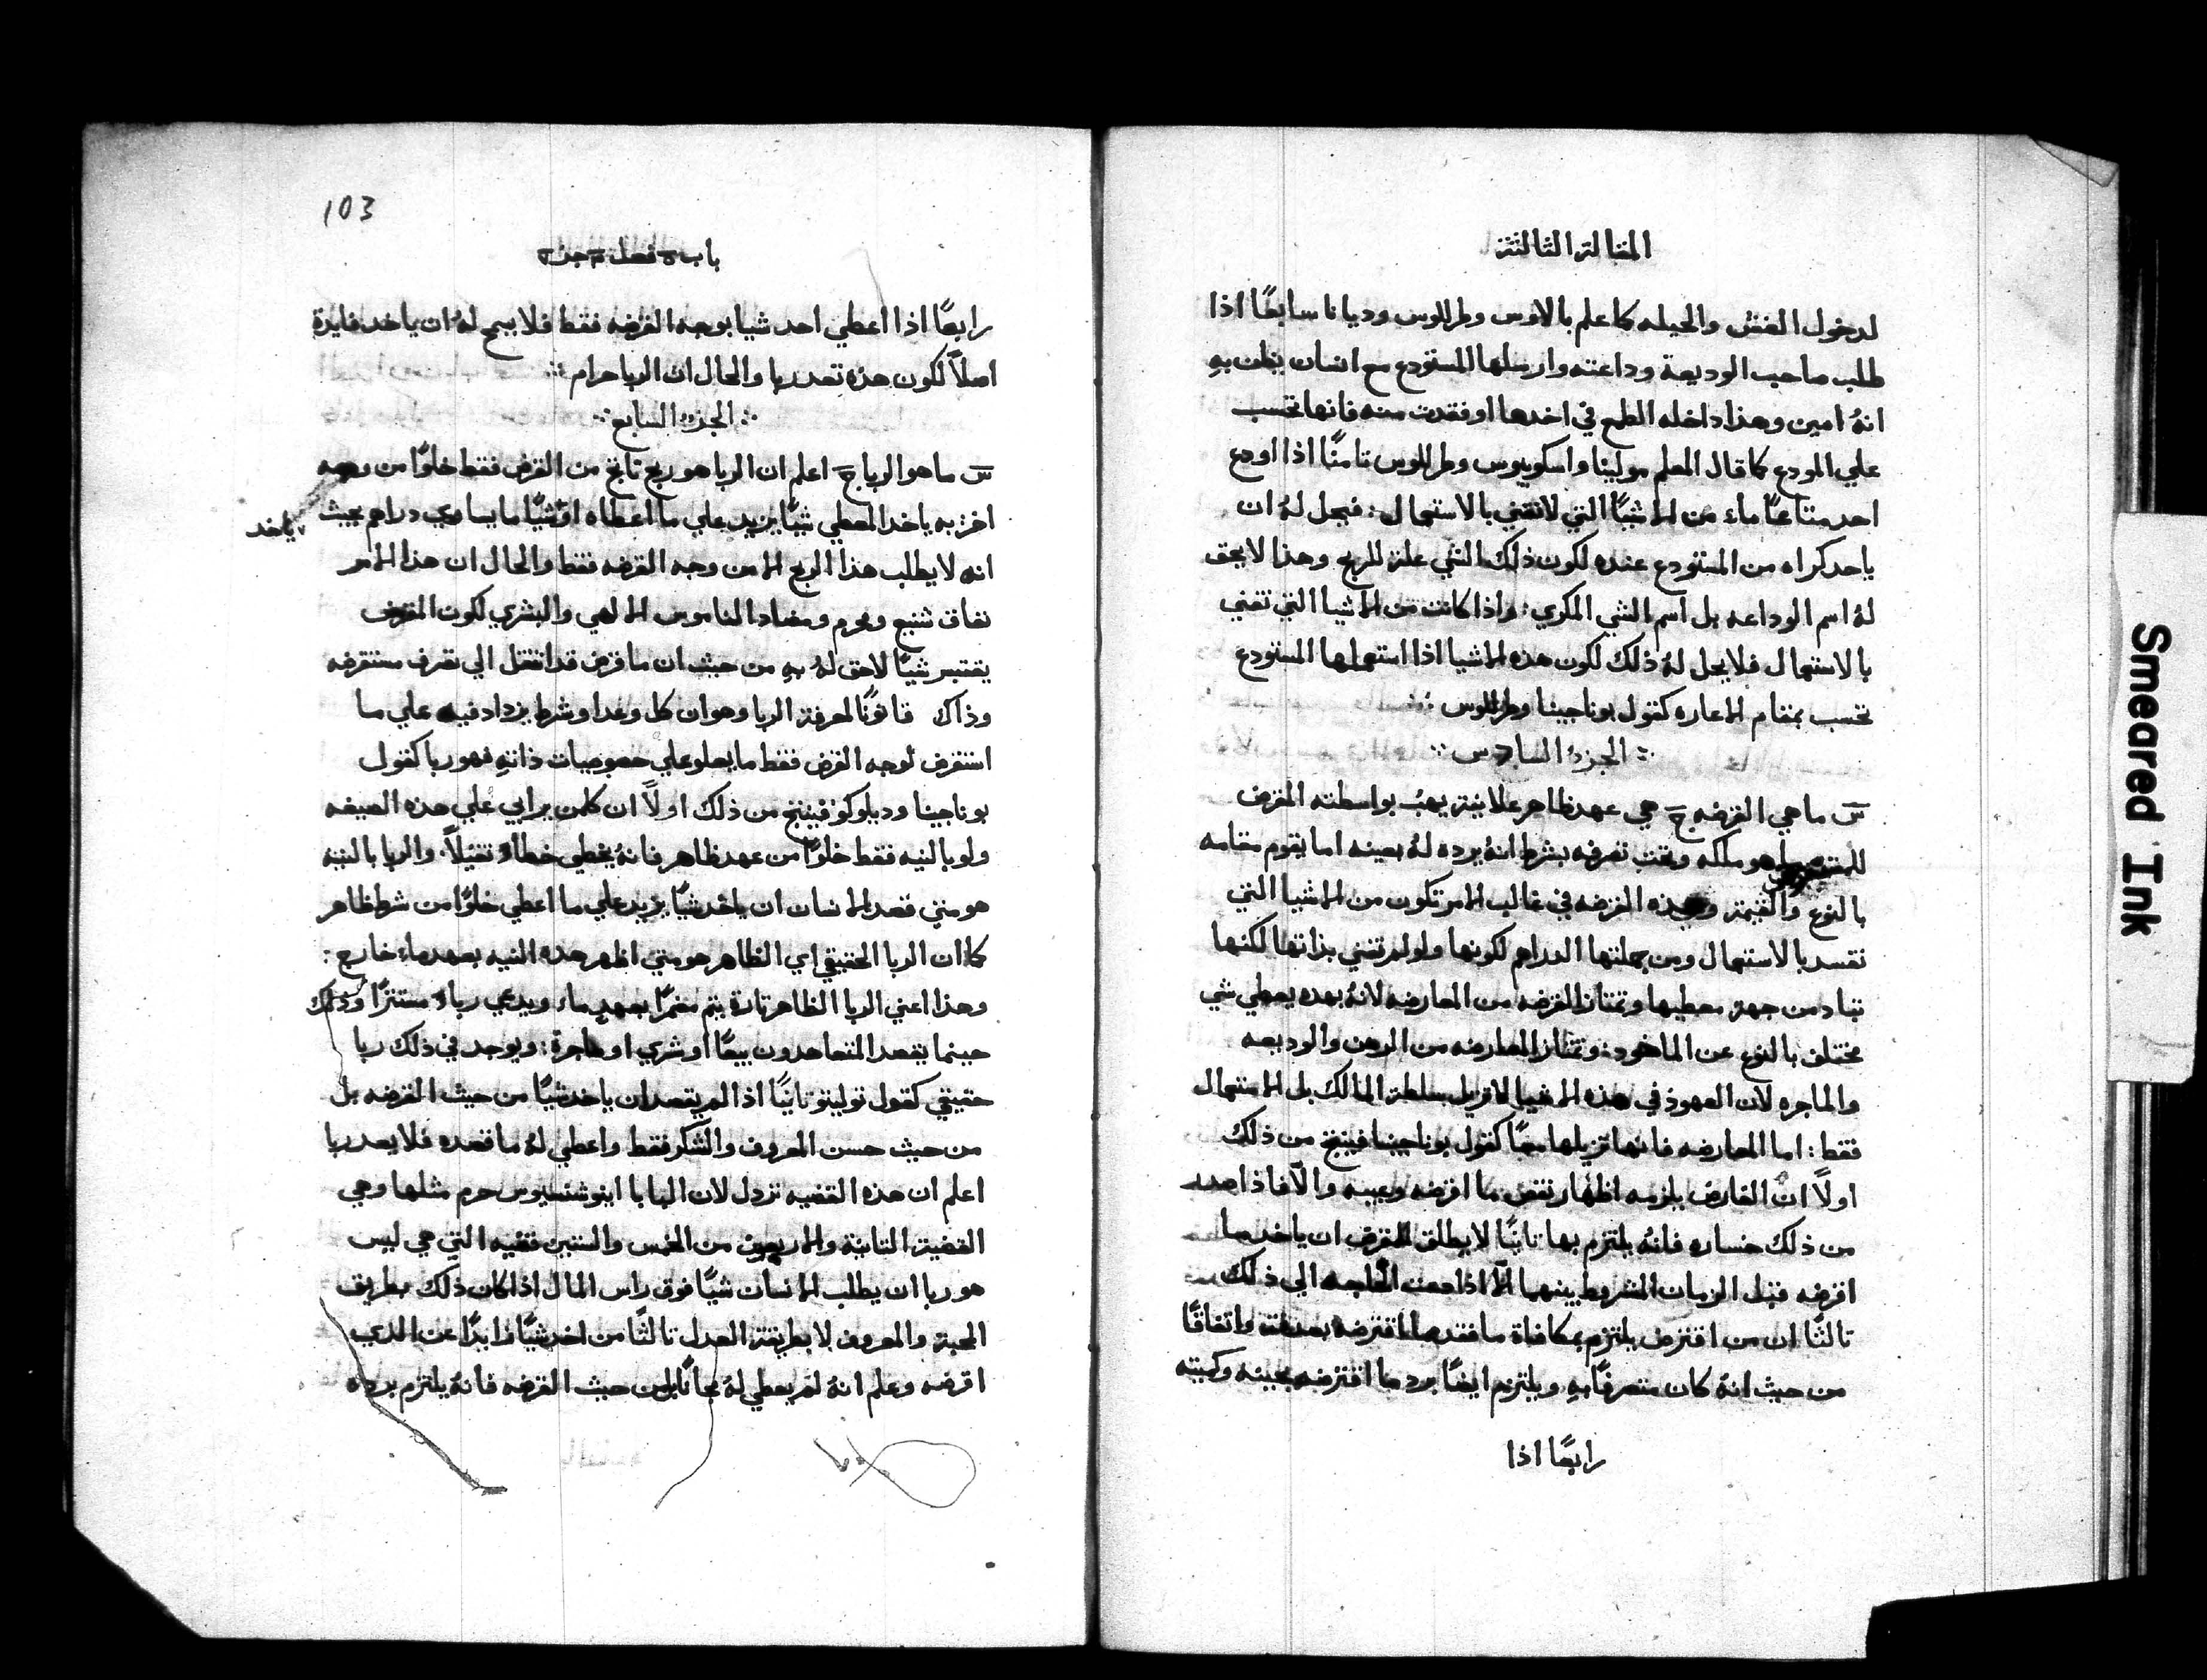 المقالة الثالثة
لدخول الغش والحيله كما علم بالاوس وطرللوس وديانا سابعًا اذا
طلب صاحب الوديعة وداعته وارسلها المستودع مع انسان يظن بهِ
انهُ امين وهذا داخله الطمع في اخدها او فقدت منه فانها تحسب
علي المودع كما قال المعلم مولينا واسكوبيوس وطرللوس تامنًا اذا اودع
احد متاعًا ماء من الاشيآ التي لا تفني بالاستعمال : فيحل لهُ ان
ياحد كراه من المستودع عنده لكون ذلك الشي علة للربح وهذا لا يحق
لهُ اسم الوداعه بل اسم الشي المكري : واذا كانت من الاشيا التي تفني
بالاستعمال فلا يحل لهُ ذلك لكون هذه الاشيا اذا استعملها المستودع
تحسب بمقام الاعاره كقول بوناجينا وطرللوس :
الجزء السادس
س ما هي القرضه ج هي عهد ظاهر علانية يهب بواسطته المقرض
هو ملكه وتحت تصرفه بشرط انهُ يرده لهُ بعينه اما يقوم مقامه
بالنوع والقيمة وهذه القرضه في غالب الامر تكون من الاشيا التي
تفسد بالاستعمال ومن جملتها الدراهم لكونها ولو لم تفني بذاتها لكنها
تباد من جهة معطيها وتمتاز القرضه من المعارضه لانهُ بهده يعطي شي
مختلف بالنوع عن الماخوذة وتمتاز المعارضه من الرهن والوديعه
والماجره لان العهود في هذه الاشيا لا تزيل سلطة المالك بل الاستعمال
فقط : اما المعارضه فانها تزيلها معًا كقول بوناجينا فينتج من ذلك
اولاً ان القارض يلزمه اظهار نقص ما اقرضه وعيبه والاّ فاذا صدر
من ذلك خساره فانهُ يلتزم بها تانيًا لا يطلق للمقرض ان ياخد ما
اقرضه قبل الزمان المشروط بينهما الاّ اذا دعت الحاجه الي ذلك
تالثًا ان من اقترض يلتزم بمكافاة ما فقد مما اقترضه بصدفة واتفاقًا
من حيث انهُ كان متصرفًا بهِ ويلتزم ايضًا برد ما اقترضه بعينه وكميته
رابعًا اذا
103
باب ٥ فصل ٣ جزء ٧
رابعًا اذا اعطي احد شيا بوجه القرضه فقط فلا يسمح لهُ ان ياخد فايدة
اصلاً لكون هذهِ تعد ربا والحال ان الربا حرام
الجزء السابع
س ما هو الربا ج اعلم ان الربا هو ربح ناتج من القرض فقط خلوًا من وجه
اخر به ياخد المعطي شيًا يزيد علي ما اعطاه او شيًا ما يساوي دراهم بحيث
ياخد
انه لا يطلب هذا الربح الا من وجه القرضه فقط والحال ان هذا الامر
نفاق شنيع ومحرم ومضاد الناموس الالهي والبشري لكون المقرض
يقتبر شيًا لا حق لهُ بهِ من حيث ان ما قرض قد انتقل الي تصرف مستقرضه
وذاك قانونًا لمعرفة الربا وهو ان كل وعد او شرط يزداد فيه علي ما
استقرف لوجه القرض فقط ما يعلو علي خصوصيات ذاتهِ فهو ربا كقول
بوناجينا وديلوكو فينتج من ذلك اولاً ان كلمن يرابي علي هذه الصيغه
ولو بالنيه فقط خلوًا من عهد ظاهر فانهُ يخطي خطاءً تقيلاً والربا بالنيه
هو متي قصد الانسان ان ياخد شيًا يزيد علي ما اعطي خلوًا من شرط ظاهر
كما ان الربا الحقيقي اي الظاهر هو متي اظهر هذه النيه بعهد ماء خارج :
وهذا اعني الربا الظاهر تارة يتم مضمرًا بعهدٍ ماء ويدعي رباءً مستترًا وذلك
حينما يقصد المتعاهدون بيعًا او شري او ماجرة : ويوجد في ذلك ربا
حقيقي كقول توليتو تانيًا اذا لم يقصد ان ياخد شيًا من حيث القرضه بل
من حيث حسن المعروف والشكر فقط واعطي لهُ ما قصده فلا يعد ربا
اعلم ان هذه القضيه تردل لان البابا اينوشنسيوس حرم مثلها وهي
القضية التانية والاربعون من الخمس والستين قضيه التي هي ليس
هو ربا ان يطلب الانسان شيًا فوق راس المال اذا كان ذلك بطريق
المحبة والمعروف لا بطريقة العدل تالثًا من اخد شيًا زايدًا عن الدي
اقرضه وعلم انهُ لم يعطي لهُ مجانًا بل من حيث القرضه فانهُ يلتزم برده
Smeared Ink